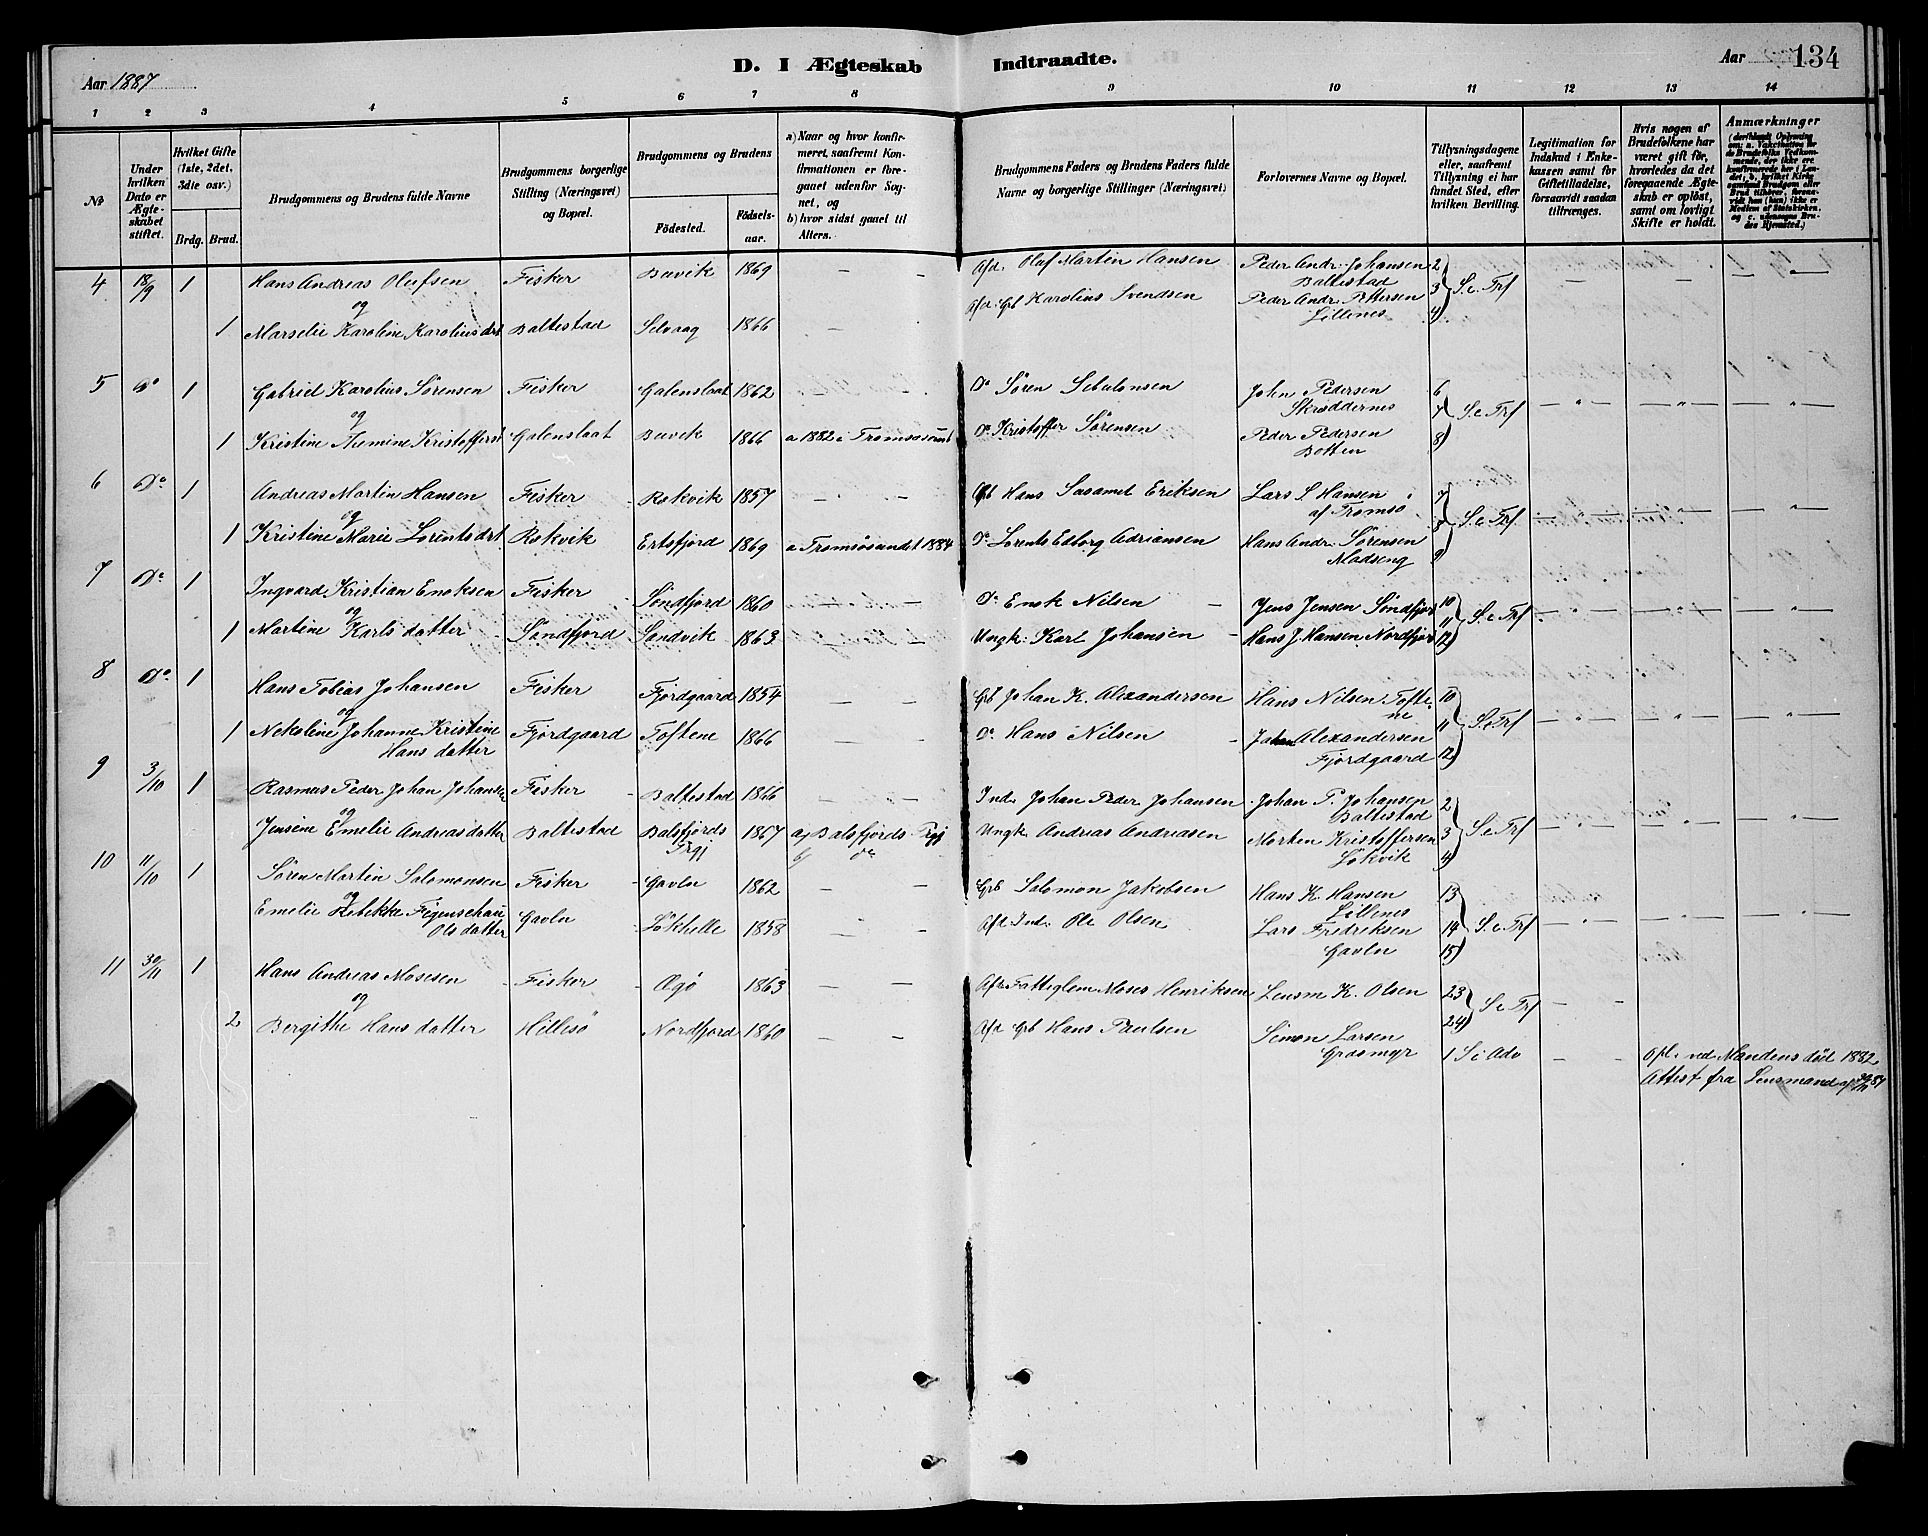 D. I Ægteskab Indtraadte.
Aar 1887
Aar 134
1 2 3 4 5 6 7 8 9 10 11 12 13 14
No
Under hvilken Dato er Ægteskabet stiftet.
Hvilket Gifte (1ste, 2det, 3die osv.)
Brdg. Brud.
Brudgommens og Brudens fulde Navne
Brudgommens borgerlige Stilling (Næringsvei) og Bopæl.
Brudgommens og Brudens
Födested.
Födselsaar.
a) Naar og hvor konfirmeret, saafremt Konfirmationen er foregaaet udenfor Sognet, og
b) hvor sidst gaaet til Alters.
Brudgommens Faders og Brudens Faders fulde Navne og borgerlige Stillinger (Næringsvei)
Forlovernes Navne og Bopæl.
Tillysningsdagene eller, saafremt Tillysning ei har fundet Sted, efter hvilken Bevilling.
Legitimation for Indskud i Enkekassen samt for Giftetilladelse, forsaavidt saadan tiltrænges.
Hvis nogen af Brudefolkene har været gift før, hvorledes da det foregaaende Ægteskab er opløst, samt om lovligt Skifte er holdt.
Anmærkninger
4 18/9 1 Hans Andreas Olufsen Fisker Bavik 1869 — — Afd. Olaf Martin Hansen Peder Andr. Johansen 2
og Baltestad 3 S. e Trf — — —
1 Marselie Karoline Karoliusdrt Baltestad Selvaag 1866 — Afd. Grb Karolius Svendsen Peder Andr. Pettersen 4)
Lillenes
5 Do 1 Gabriel Karolius Sørensen Fisker Galenslaat 1862 Do Søren Sebulonsen John Pedersen 6
og Skrøddernes 7 S. e Trf
1 Kristine Themine Kristofferst Galenslaat Bavik 1866 a 1882 i Tromsøsund Do Kristoffer Sørensen Peder Pedersen 8)
Botten
6 Do 1 Andreas Martin Hansen Fisker Rekvik 1857 — — Grb Hans Eriksen Lars S Hansen 7
og af Tromsø 8 S. e Trf
1 Kristine Marie Lorentsdrt Rekvik Ertsfjord 1869 a Tromsøsundet 1884 Do Lorents Edborg Adriansen Hans Andr. Sørensen 9
Madseng
7 Do 1 Ingvard Kristian Enoksen Fisker Søndfjord 1860 — — Do Enok Nilsen Jens Jensen Søndfjor 10
og 11 S. e Trf
1 Martine Karls datter Søndfjord Sandvik 1863 — Ungk. Karl Johansen Hans J. Hansen Nordfjor 12)
8 Do 1 Hans Tobias Johansen Fisker Fjordgaard 1854 — — Grb Johan K. Alexandersen Hans Nilsen Tofte 10
og ne 11 S. e Trf
1 Nekoline Johanne Kristine Fjordgaard Toftene 1866 — — Do Hans Nilsen Johan Alexandersen
Hans datter Fjordgaard 12)
9 3/10 1 Rasmus Peder Johan Johansen Fisker Baltestad 1866 — — Ind. Johan Peder Johansen Johan P. Johansen 2
og Baltestad
Jensine Emelie Andreasdatter Baltestad Balsfjords 1867 a) Balsfjords Prgj Ungk Andreas Andreasen Morten Kristoffersen 3 S. e Trf
Prgj b) do Løkvik 4)
10 11/10 1 Søren Martin Salomonsen Fisker Gavln 1862 — — Grb Salomon Jakobsen Hans K. Hansen 13
og Lillenes
Emelie Rebekke Figenschau Gavln Løkhelle 1858 — — Afd Ind. Ole Olsen Lars Fredriksen 14 S. e Trf
Ols datter Gavln 15)
11 30/11 1 Hans Andreas Mosesen Fisker Ægø 1863 — — Afd. Fattiglem Moses Henriksen Lensm K. Olsen 23
og 24) S. e Trf
2 Bergithe Hans datter Hillesø Nordfjord 1860 — — Afd Grb Hans Paulsen Simon Larsen
Grasmyr 1 S i Adv — — Opl. ved Mandens død 1882
Attest fra Lensmand af 30/11 87